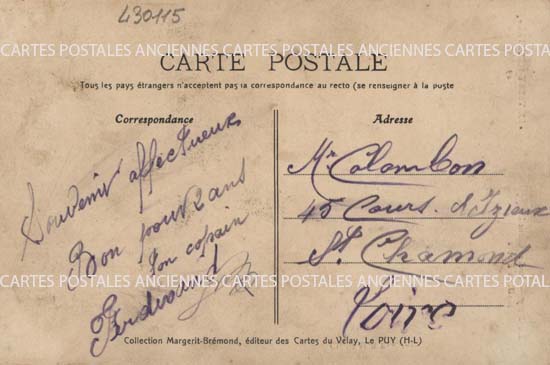 430115
CARTES POSTALES ANCIENNES CARTES POSTALES ANCIENNES CARTES POSTAL
CARTE POSTALE
Tous les pays étrangers n'acceptent pas la correspondance au recto (se renseigner à la poste
Correspondance
Souvenir affectueux
Bon pour 2 ans
Ton copain
Ferdinand
Adresse
Mr Colombon
45 Cours d'Izieux
St Chamond
Loire
CARTES POSTALES ANCIENNES CARTES POSTALES ANCIENNES CARTES POSTAL
Collection Margerit-Brémond, éditeur des Cartes du Velay, Le PUY (H-L)